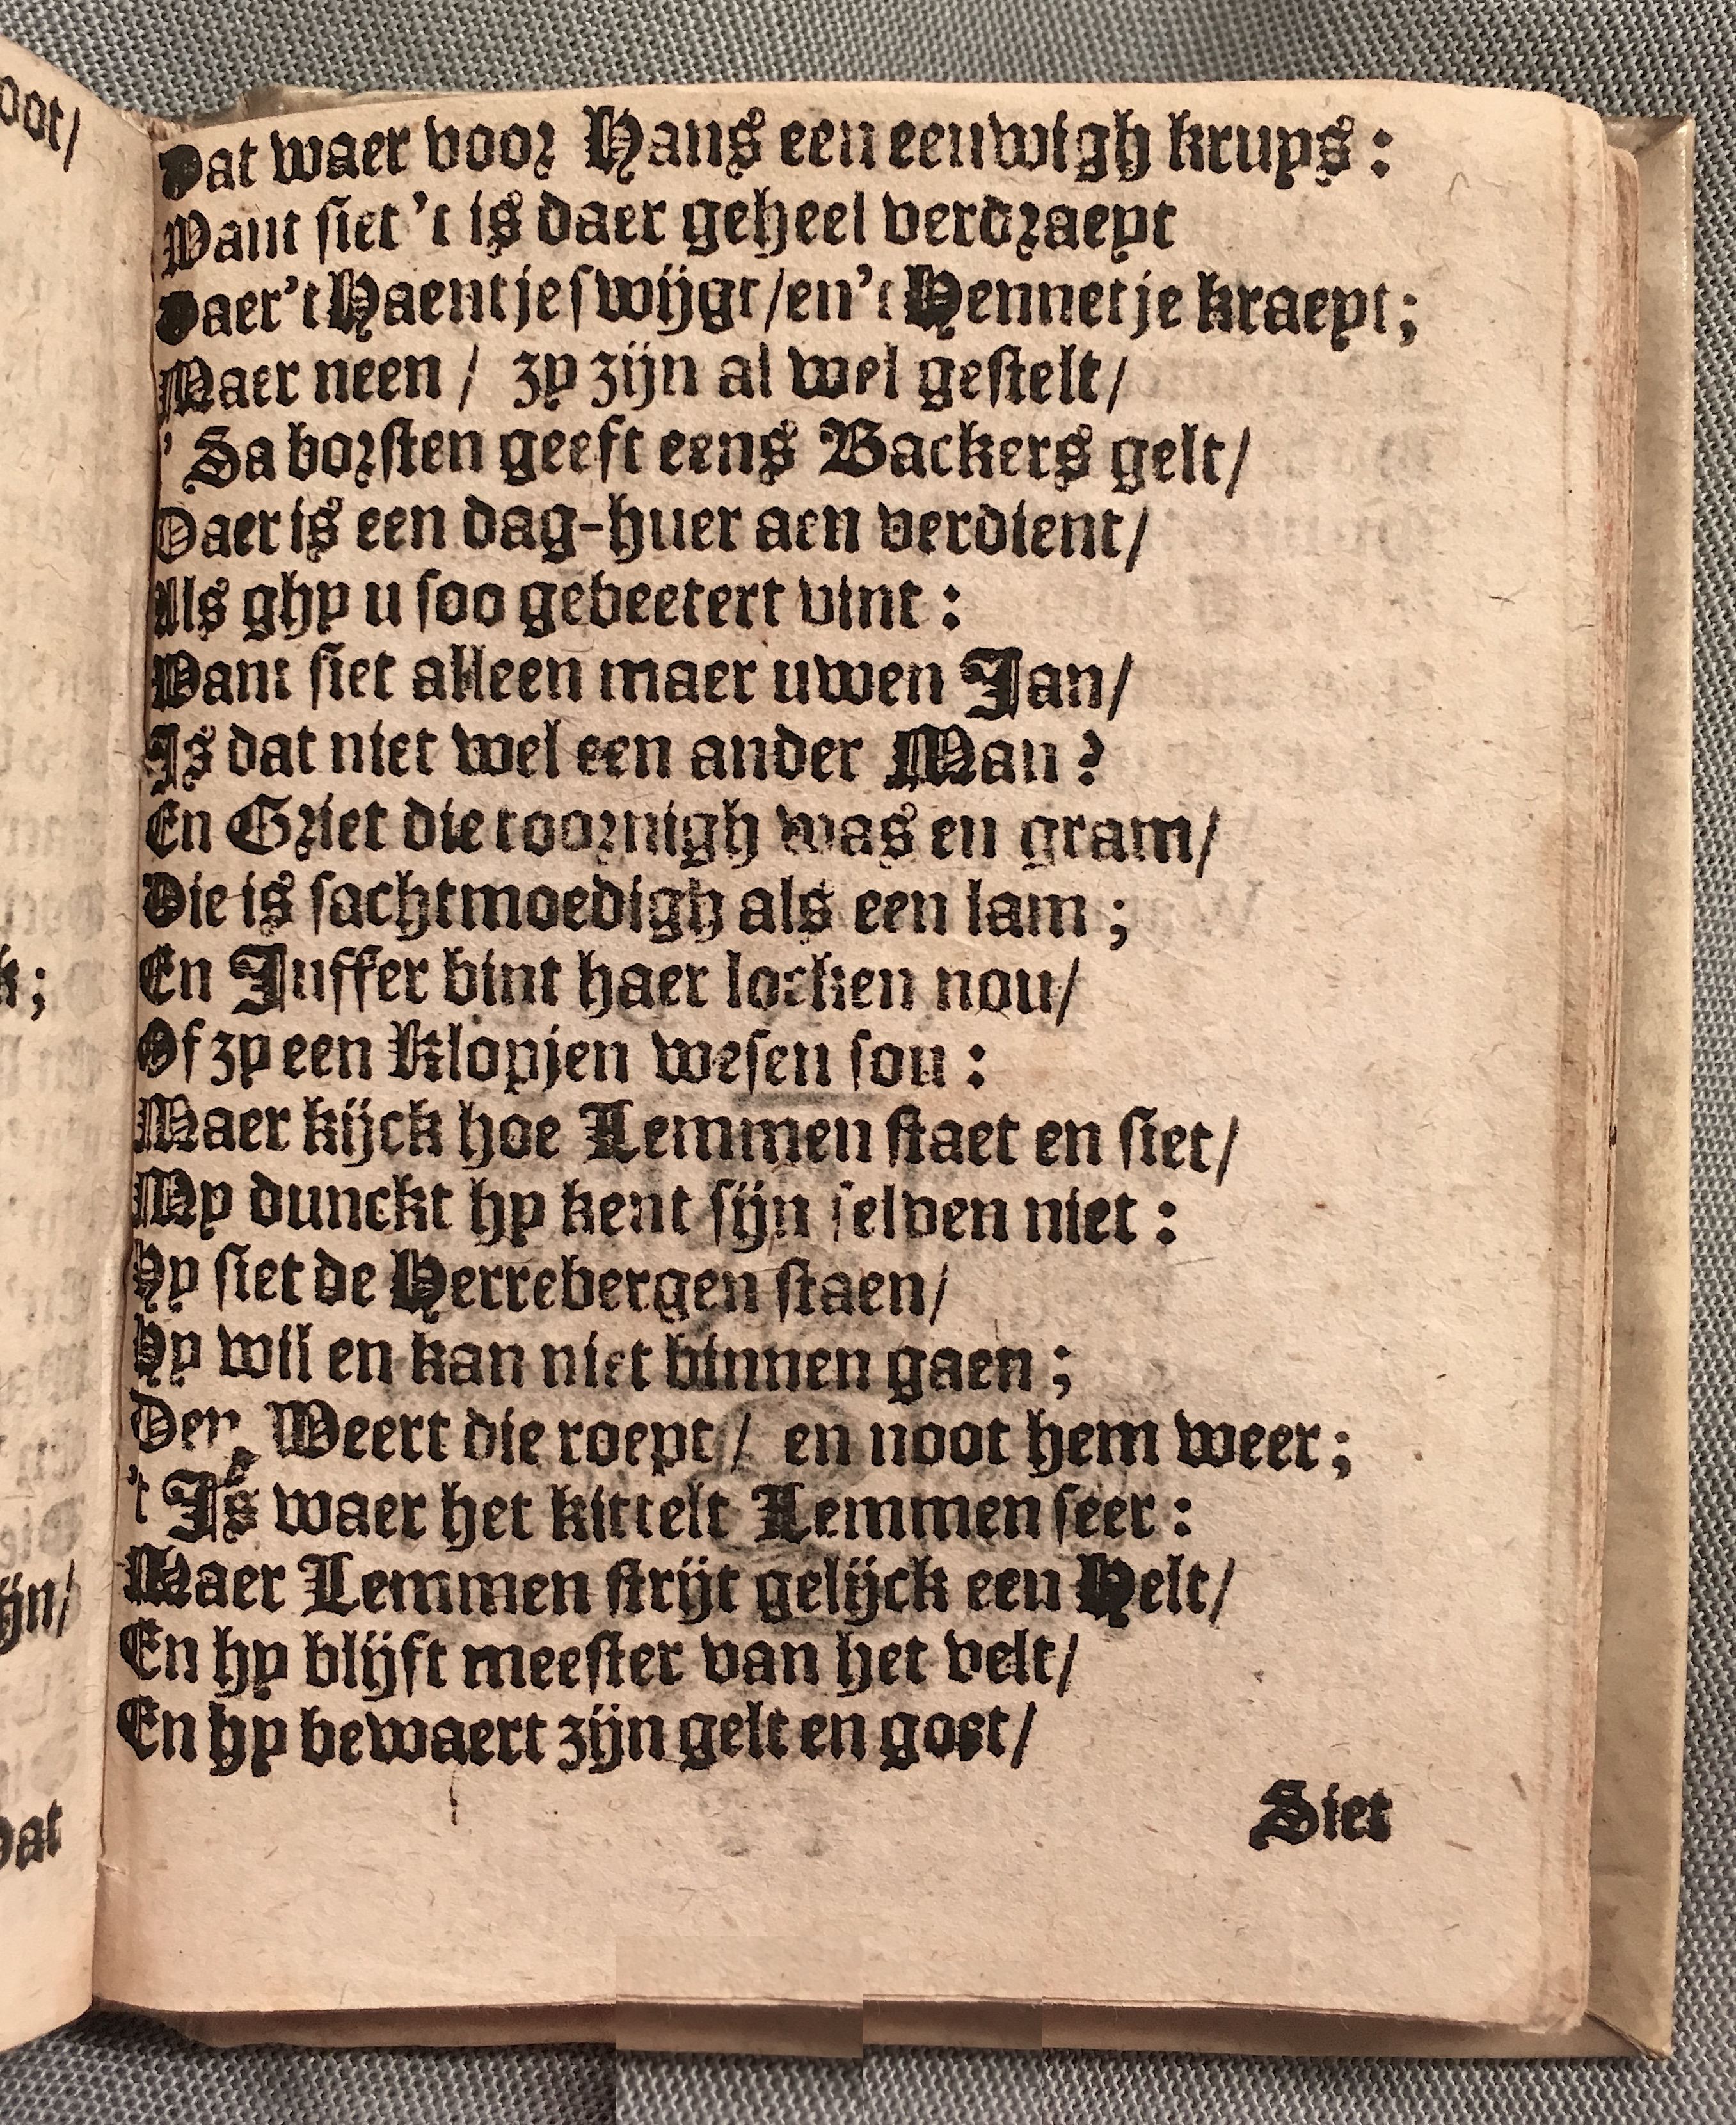 oot/
Dat waer voor Hans een eeuwigh kruys:
Want siet 't is daer geheel verdraeyt
Daer 't Haentje swijgt/en 't Hennetje kraeyt;
Maer neen / zy zijn al wel gestelt/
'Sa borsten geeft eens Backers gelt/
Daer is een dag-huer aen verdient/
Als ghy u soo gebeetert vint:
Want siet alleen maer uwen Jan/
Is dat niet wel een ander Man?
En Griet die toornigh was en gram/
Die is sachtmoedigh als een lam;
k;
En Juffer bint haer locken nou/
Of zy een Klopjen wesen sou:
Maer kijck hoe Lemmen staet en siet/
My dunckt hy kent sijn selven niet:
Hy siet de Herrebergen staen/
Hy wil en kan niet binnen gaen;
Den Weert die roept/ en noot hem weer;
't Is waer het kittelt Lemmen seer:
ijn/
Maer Lemmen strijt gelijck een Helt/
En hy blijft meester van het velt/
En hy bewaert zijn gelt en goet/
Dat
Siet